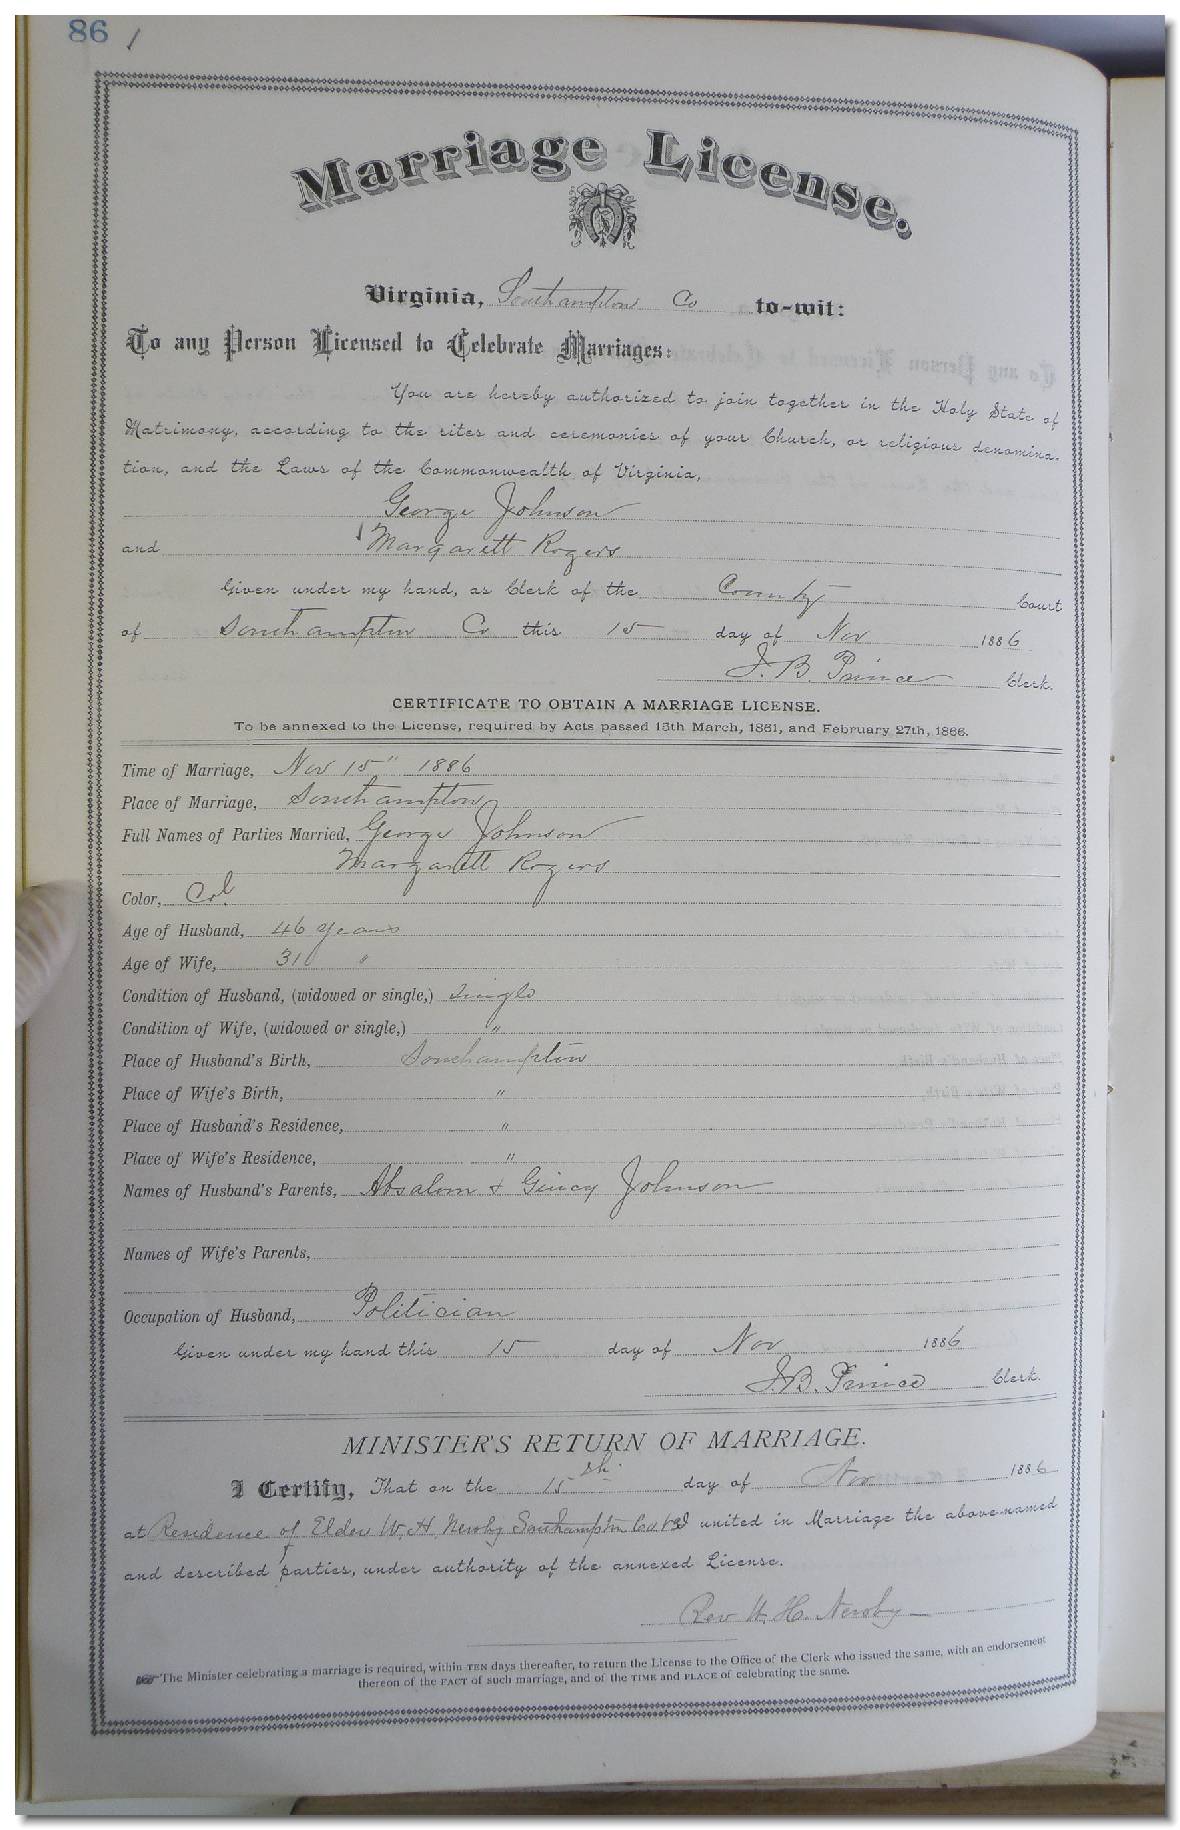 86 /
Marriage License.
Virginia, Southampton Co to-wit:
To any Person Licensed to Celebrate Marriages:
You are hereby authorized to join together in the Holy State of
Matrimony, according to the rites and ceremonies of your Church, or religious denomina-
tion, and the Laws of the Commonwealth of Virginia,
George Johnson
and Margarett Rogers
Given under my hand, as Clerk of the County Court
of Southampton Co this 15 day of Nov 1886
J. B. Prince Clerk.
CERTIFICATE TO OBTAIN A MARRIAGE LICENSE.
To be annexed to the License, required by Acts passed 15th March, 1861, and February 27th, 1866.
Time of Marriage, Nov 15" 1886
Place of Marriage, Southampton
Full Names of Parties Married, George Johnson
Margarett Rogers
Color, Col
Age of Husband, 46 years
Age of Wife, 31 "
Condition of Husband, (widowed or single,) single
Condition of Wife, (widowed or single,) "
Place of Husband's Birth, Southampton
Place of Wife's Birth, "
Place of Husband's Residence, "
Place of Wife's Residence, "
Names of Husband's Parents, Absalom & Gincy Johnson
Names of Wife's Parents,
Occupation of Husband, Politician
Given under my hand this 15 day of Nov 1886
J. B. Prince Clerk.
MINISTER'S RETURN OF MARRIAGE.
I Certify, That on the 15th. day of Nov 1886
at Residence of Elder W. H. Newby Southampton Co. Va I united in Marriage the above-named
and described parties, under authority of the annexed License.
Rev W. H. Newby
The Minister celebrating a marriage is required, within TEN days thereafter, to return the License to the Office of the Clerk who issued the same, with an endorsement
thereon of the FACT of such marriage, and of the TIME and PLACE of celebrating the same.